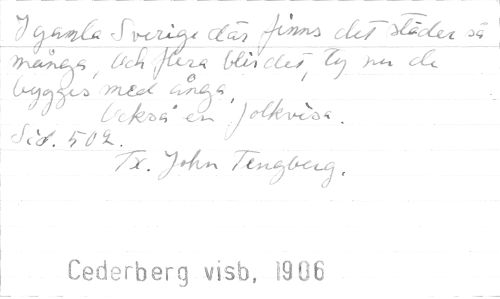 I gamla Sverige där finns det städer så
många, och flera blir det, ty nu de
bygges med ånga,
Också en folkvisa.
Sid. 502.
Tx. John Tengberg.
Cederberg visb, 1906